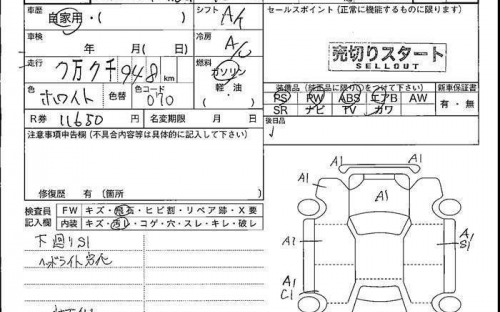 車歴 シフト セールスポイント (正常に機能するものに限ります)
自家用・( ) A/T
車検 冷房
年 月( 日) A/C
売切りスタート
SELLOUT
走行 7万7千948km 燃料 ガソリン
軽・油
( )
装備品(装着品に限り○をつけて下さい) 新車保証書
色 ホワイト 色替 色コード 070
PS PW ABS エアB AW 有・無
SR ナビ TV カワ
R券 11650 円 名変期限 月 日
後日品
注意事項申告欄 (不具合内容等は具体的に記入して下さい)
修復歴 有 (箇所 )
検査員 FW キズ・飛石・ヒビ割・リペア跡・X要
記入欄 内装 キズ・汚れ・コゲ・穴・スレ・キレ・破レ
下廻りS1
ヘッドライト劣化
A1
A1
A1
A1
A1
A1
S1
A1
C1